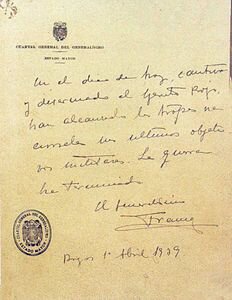 CUARTEL GENERAL DEL GENERALÍSIMO
ESTADO MAYOR
En el dia de hoy, cautivo
y desarmado el Ejercito Rojo,
han alcanzado las tropas na-
cionales sus ultimos objeti-
vos militares. La guerra
ha terminado
El Generalísimo
Franco
Burgos 1º Abril 1939
CUARTEL GENERAL DEL GENERALISIMO
ESTADO MAYOR